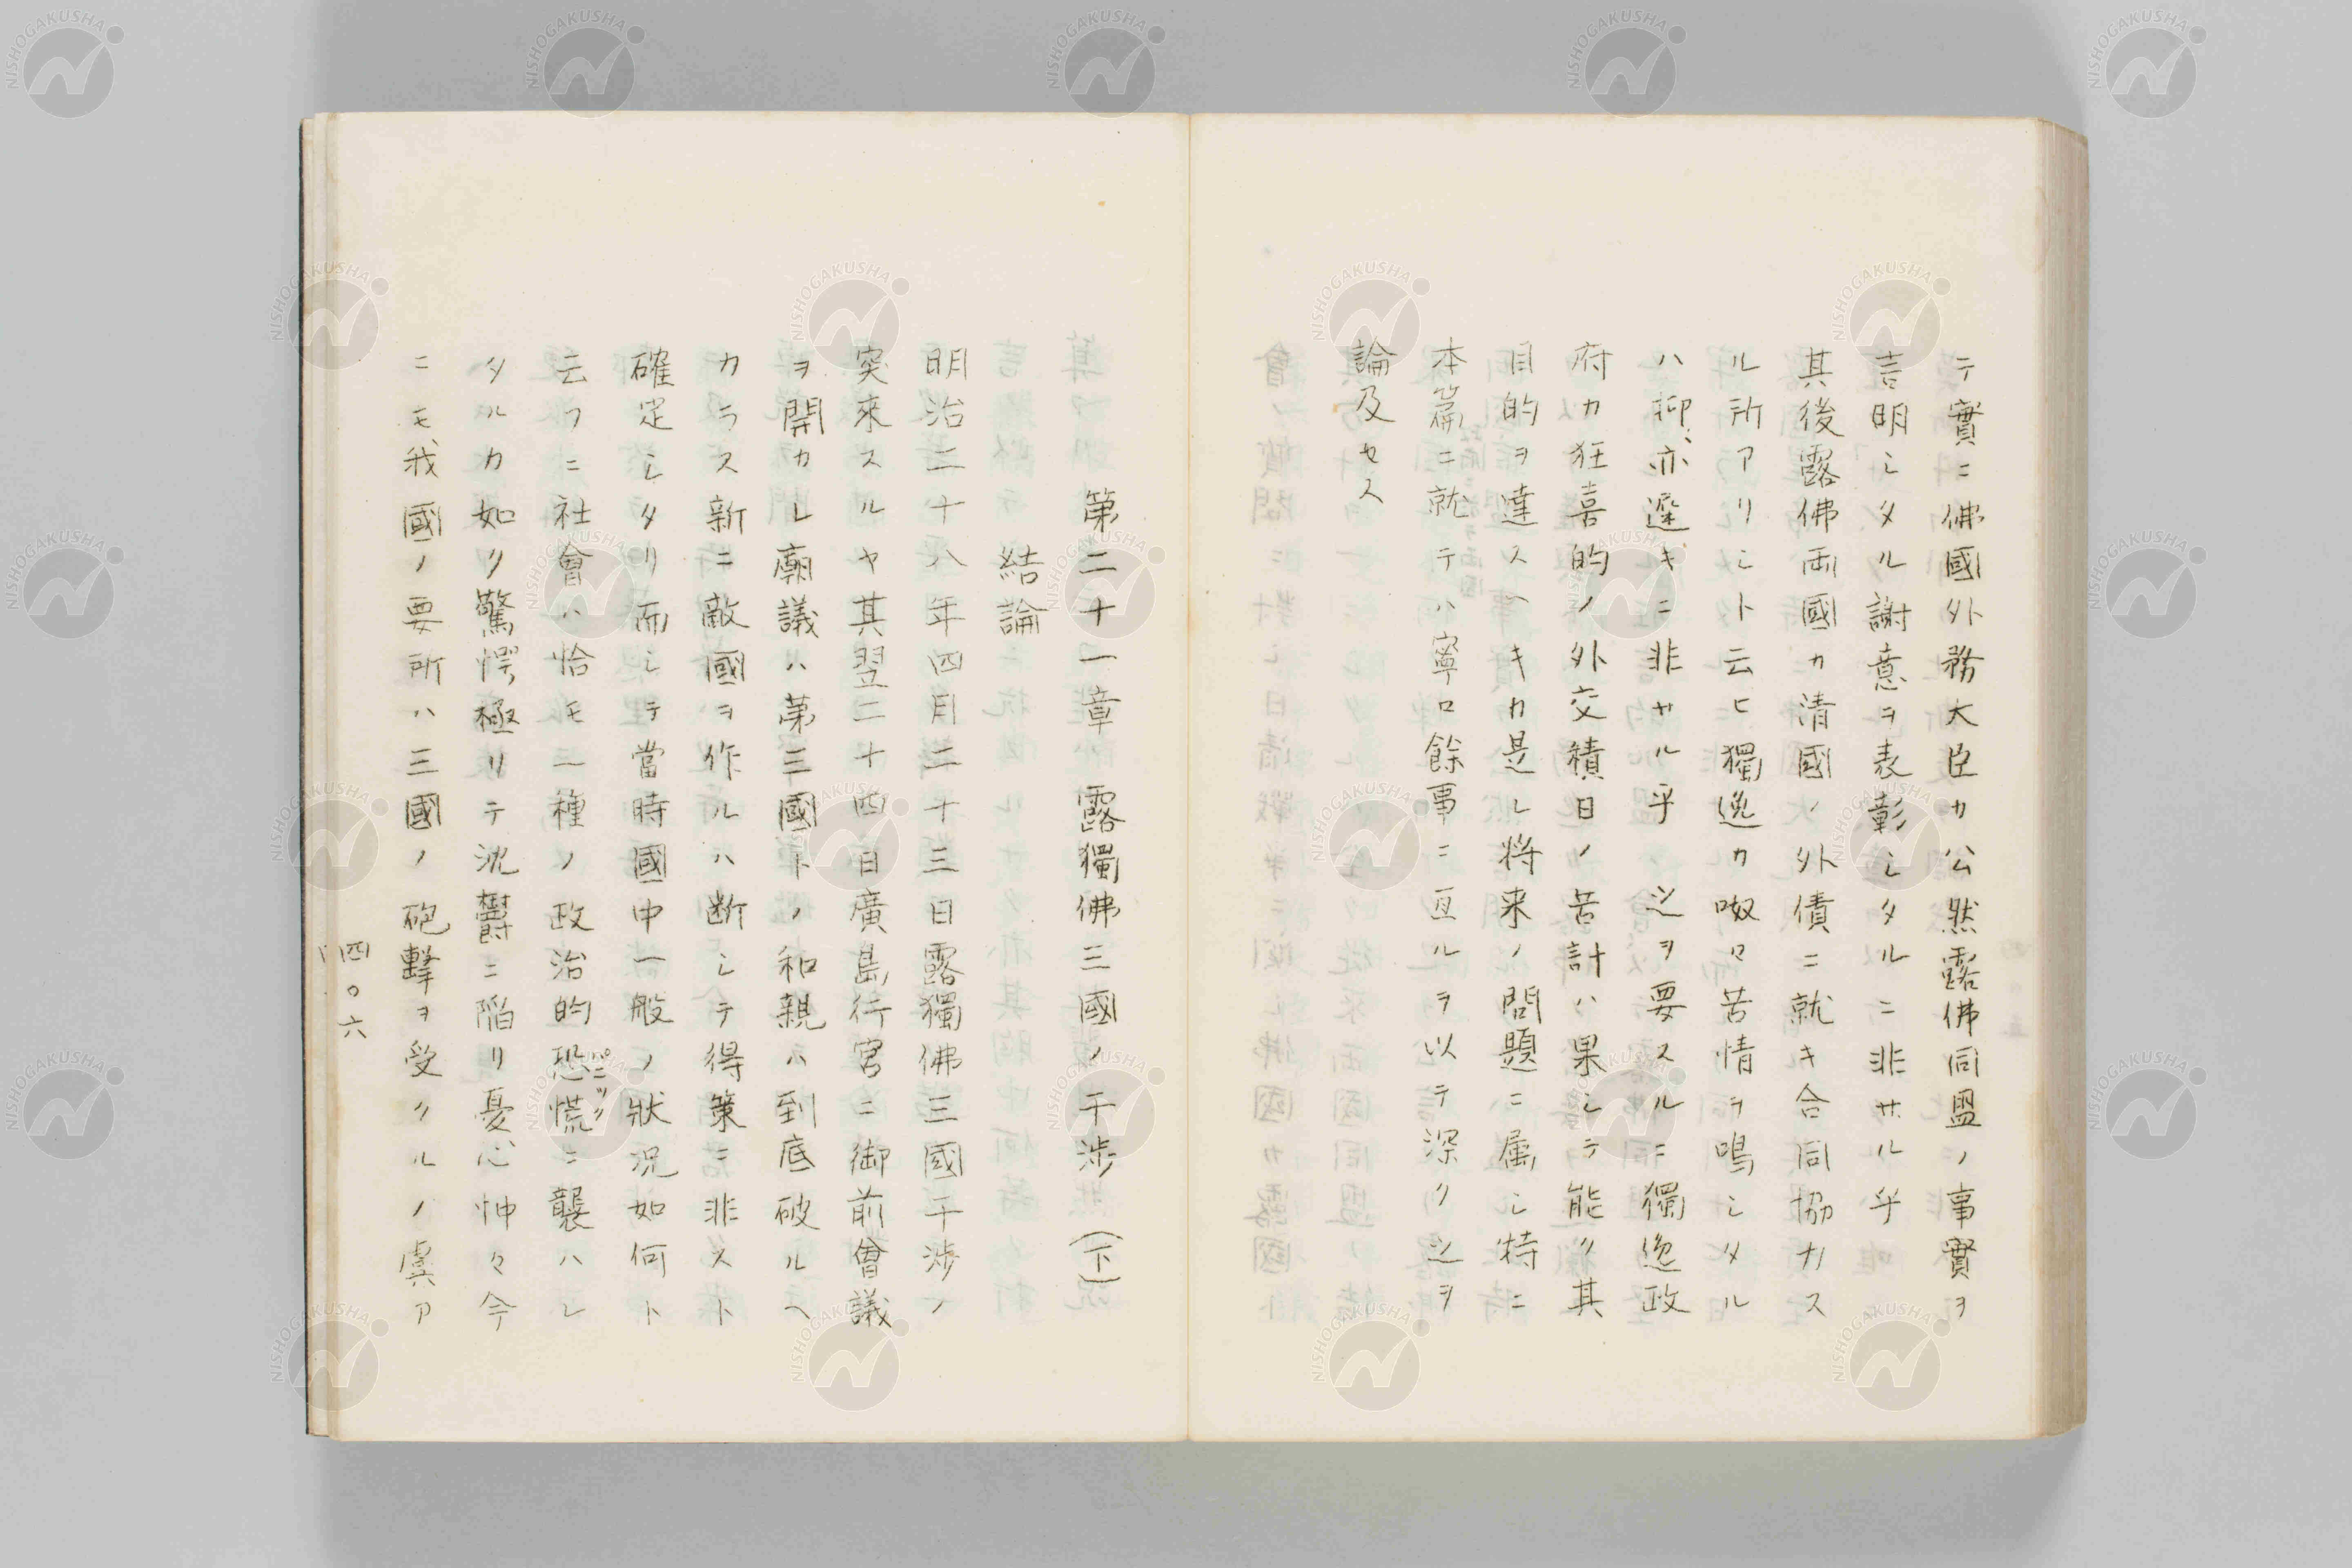 テ實ニ佛國外務大臣カ公然露佛同盟ノ事實ヲ
言明シタル謝意ヲ表彰シタルニ非サル乎
其後露佛両國カ清國ノ外債ニ就キ合同協力ス
ル所アリシト云ヒ獨逸カ呶々苦情ヲ鳴シタル
ハ抑亦遅キニ非サル乎之ヲ要スルニ獨逸政
府カ狂喜的ノ外交積日ノ苦計ハ果シテ能ク其
目的ヲ達スヘキカ是レ将来ノ問題ニ属シ特ニ
本篇ニ就テハ寧ロ餘事ニ亙ルヲ以テ深ク之ヲ
論及セス
第二十一章 露獨佛三國ノ干渉(下)
結論
明治二十八年四月二十三日露獨佛三國干渉ノ
突来スルヤ其翌二十四日廣島行宮ニ御前會議
ヲ開カレ廟議ハ第三國トノ和親ハ到底破ルヘ
カラス新ニ敵國ヲ作ルハ断シテ得策ニ非スト
確定シタリ而シテ當時國中一般ノ狀況如何ト
云フニ社會ハ恰モ一種ノ政治的恐慌ニ襲ハレ
パニック
タルカ如ク驚愕極リテ沈鬱ニ陥リ憂心忡々今
ニモ我國ノ要所ハ三國ノ砲撃ヲ受クルノ虞ア
四〇六
NISHOGAKUSHA